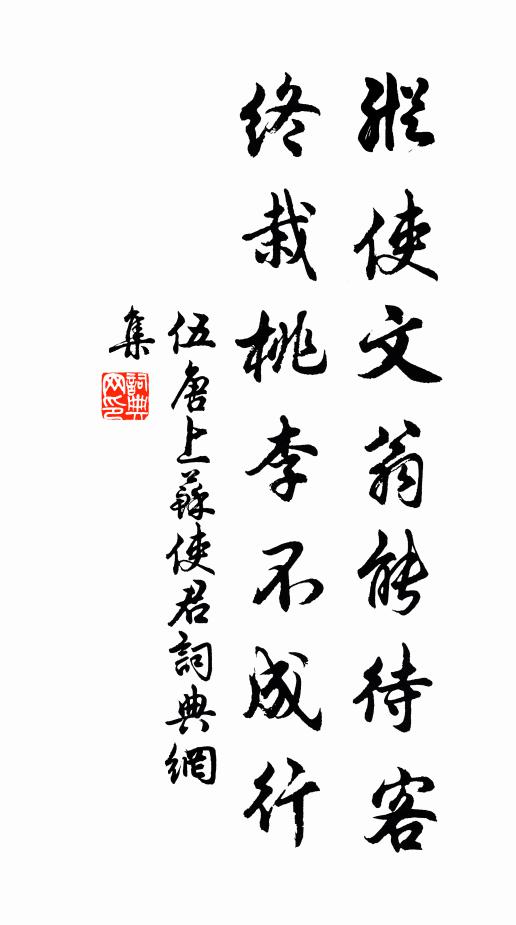 縱使文翁能待客
終栽桃李不成行
伍唐上蘇使君詞典網
集
詞典
网印